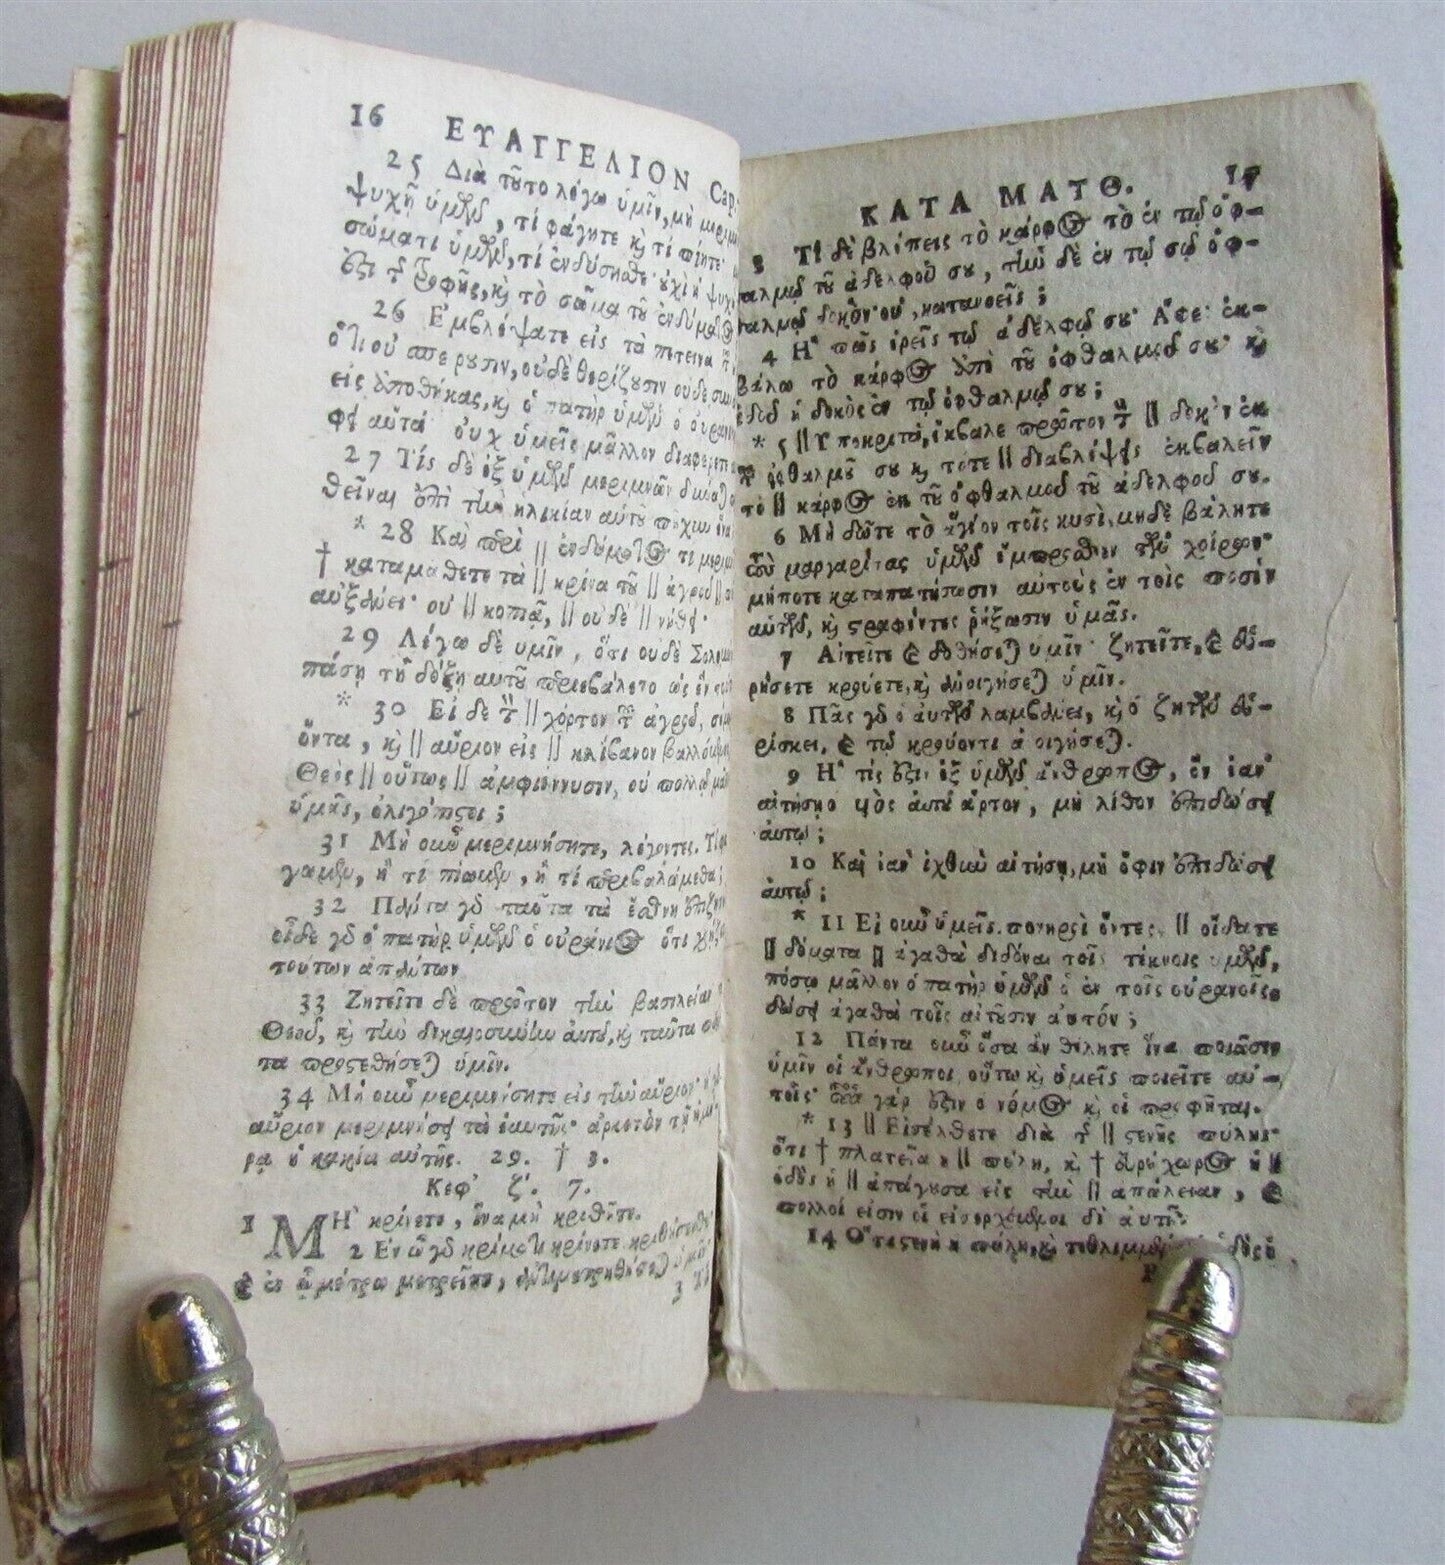 16 ΕΥΑΓΓΕΛΙΟΝ Cap.
25 Διὰ τοῦτο λέγω ὑμῖν, μὴ
ψυχῇ ὑμῶν, τί φάγητε καὶ τί πίητε·
σώματι ὑμῶν, τί ἐνδύσησθε· οὐχὶ ἡ ψυχὴ
ἐστι τῆς τροφῆς, καὶ τὸ σῶμα τοῦ ἐνδύματος
26 Ἐμβλέψατε εἰς τὰ πετεινὰ
ὅτι οὐ σπείρουσιν, οὐδὲ θερίζουσιν οὐδὲ
εἰς ἀποθήκας, καὶ ὁ πατὴρ ὑμῶν ὁ
αὐτά· οὐχ ὑμεῖς μᾶλλον διαφέρετε
27 Τίς δὲ ἐξ ὑμῶν μεριμνῶν
θεῖναι ἐπὶ τὴν ἡλικίαν αὐτοῦ πῆχυν
* 28 Καὶ περὶ || ἐνδύματος τί
† καταμάθετε τὰ || κρίνα τοῦ || ἀγροῦ ||
αὐξάνει· οὐ || κοπιᾷ, || οὐδὲ || νήθει·
29 Λέγω δὲ ὑμῖν, ὅτι οὐδὲ
πάσῃ τῇ δόξῃ αὐτοῦ περιεβάλετο ὡς ἓν
* 30 Εἰ δὲ τὸν || χόρτον τοῦ ἀγροῦ,
ὄντα, καὶ || αὔριον εἰς || κλίβανον
Θεὸς || οὕτως || ἀμφιέννυσιν, οὐ πολλῷ
ὑμᾶς, ὀλιγόπιστοι;
31 Μὴ οὖν μεριμνήσητε, λέγοντες, Τί
γωμεν, ἢ τί πίωμεν, ἢ τί περιβαλώμεθα;
32 Πάντα γὰρ ταῦτα τὰ ἔθνη
οἶδε γὰρ ὁ πατὴρ ὑμῶν ὁ οὐράνιος ὅτι
τούτων ἁπάντων
33 Ζητεῖτε δὲ πρῶτον τὴν βασιλείαν
Θεοῦ, καὶ τὴν δικαιοσύνην αὐτοῦ, καὶ ταῦτα
τα προστεθήσεται ὑμῖν.
34 Μὴ οὖν μεριμνήσητε εἰς τὴν αὔριον·
αὔριον μεριμνήσει τὰ ἑαυτῆς· ἀρκετὸν τῇ
ρᾳ ἡ κακία αὐτῆς. 29. † 3.
Κεφ. ζʹ. 7.
1 ΜΗ κρίνετε, ἵνα μὴ κριθῆτε.
2 Ἐν ᾧ γὰρ κρίματι κρίνετε κριθήσεσθε·
καὶ ἐν ᾧ μέτρῳ μετρεῖτε, ἀντιμετρηθήσεται ὑμῖν
3 Τί
ΚΑΤΑ ΜΑΤΘ. 17
3 Τί δὲ βλέπεις τὸ κάρφος τὸ ἐν τῷ ὀφ-
θαλμῷ τοῦ ἀδελφοῦ σου, τὴν δὲ ἐν τῷ σῷ ὀφ-
θαλμῷ δοκὸν οὐ κατανοεῖς;
4 Ἢ πῶς ἐρεῖς τῷ ἀδελφῷ σου· Ἄφες ἐκ-
βάλω τὸ κάρφος ἀπὸ τοῦ ὀφθαλμοῦ σου· καὶ
ἰδοὺ ἡ δοκὸς ἐν τῷ ὀφθαλμῷ σου;
* 5 || Ὑποκριτά, ἔκβαλε πρῶτον τὴν || δοκὸν ἐκ
τοῦ ὀφθαλμοῦ σου καὶ τότε || διαβλέψεις ἐκβαλεῖν
τὸ || κάρφος ἐκ τοῦ ὀφθαλμοῦ τοῦ ἀδελφοῦ σου.
6 Μὴ δῶτε τὸ ἅγιον τοῖς κυσὶ, μηδὲ βάλητε
τοὺς μαργαρίτας ὑμῶν ἔμπροσθεν τῶν χοίρων·
μήποτε καταπατήσωσιν αὐτοὺς ἐν τοῖς ποσὶν
αὐτῶν, καὶ στραφέντες ῥήξωσιν ὑμᾶς.
7 Αἰτεῖτε καὶ δοθήσεται ὑμῖν· ζητεῖτε, καὶ εὑ-
ρήσετε κρούετε, καὶ ἀνοιγήσεται ὑμῖν.
8 Πᾶς γὰρ ὁ αἰτῶν λαμβάνει, καὶ ὁ ζητῶν εὑ-
ρίσκει, καὶ τῷ κρούοντι ἀνοιγήσεται.
9 Ἢ τίς ἐστιν ἐξ ὑμῶν ἄνθρωπος, ὃν ἐὰν
αἰτήσῃ ὁ υἱὸς αὐτοῦ ἄρτον, μὴ λίθον ἐπιδώσει
αὐτῷ;
10 Καὶ ἐὰν ἰχθὺν αἰτήσῃ, μὴ ὄφιν ἐπιδώσει
αὐτῷ;
* 11 Εἰ οὖν ὑμεῖς πονηροὶ ὄντες, || οἴδατε
|| δόματα || ἀγαθὰ διδόναι τοῖς τέκνοις ὑμῶν,
πόσῳ μᾶλλον ὁ πατὴρ ὑμῶν ὁ ἐν τοῖς οὐρανοῖς
δώσει ἀγαθὰ τοῖς αἰτοῦσιν αὐτόν;
12 Πάντα οὖν ὅσα ἂν θέλητε ἵνα ποιῶσιν
ὑμῖν οἱ ἄνθρωποι, οὕτω καὶ ὑμεῖς ποιεῖτε αὐ-
τοῖς· οὗτος γάρ ἐστιν ὁ νόμος καὶ οἱ προφῆται.
* 13 || Εἰσέλθετε διὰ τῆς || στενῆς πύλης·
ὅτι † πλατεῖα ἡ || πύλη, καὶ † εὐρύχωρος ἡ ||
ὁδὸς ἡ || ἀπάγουσα εἰς τὴν || ἀπώλειαν, καὶ
πολλοί εἰσιν οἱ εἰσερχόμενοι δι᾽ αὐτῆς·
14 Ὅτι στενὴ ἡ πύλη, καὶ τεθλιμμένη ἡ ὁδὸς ἡ